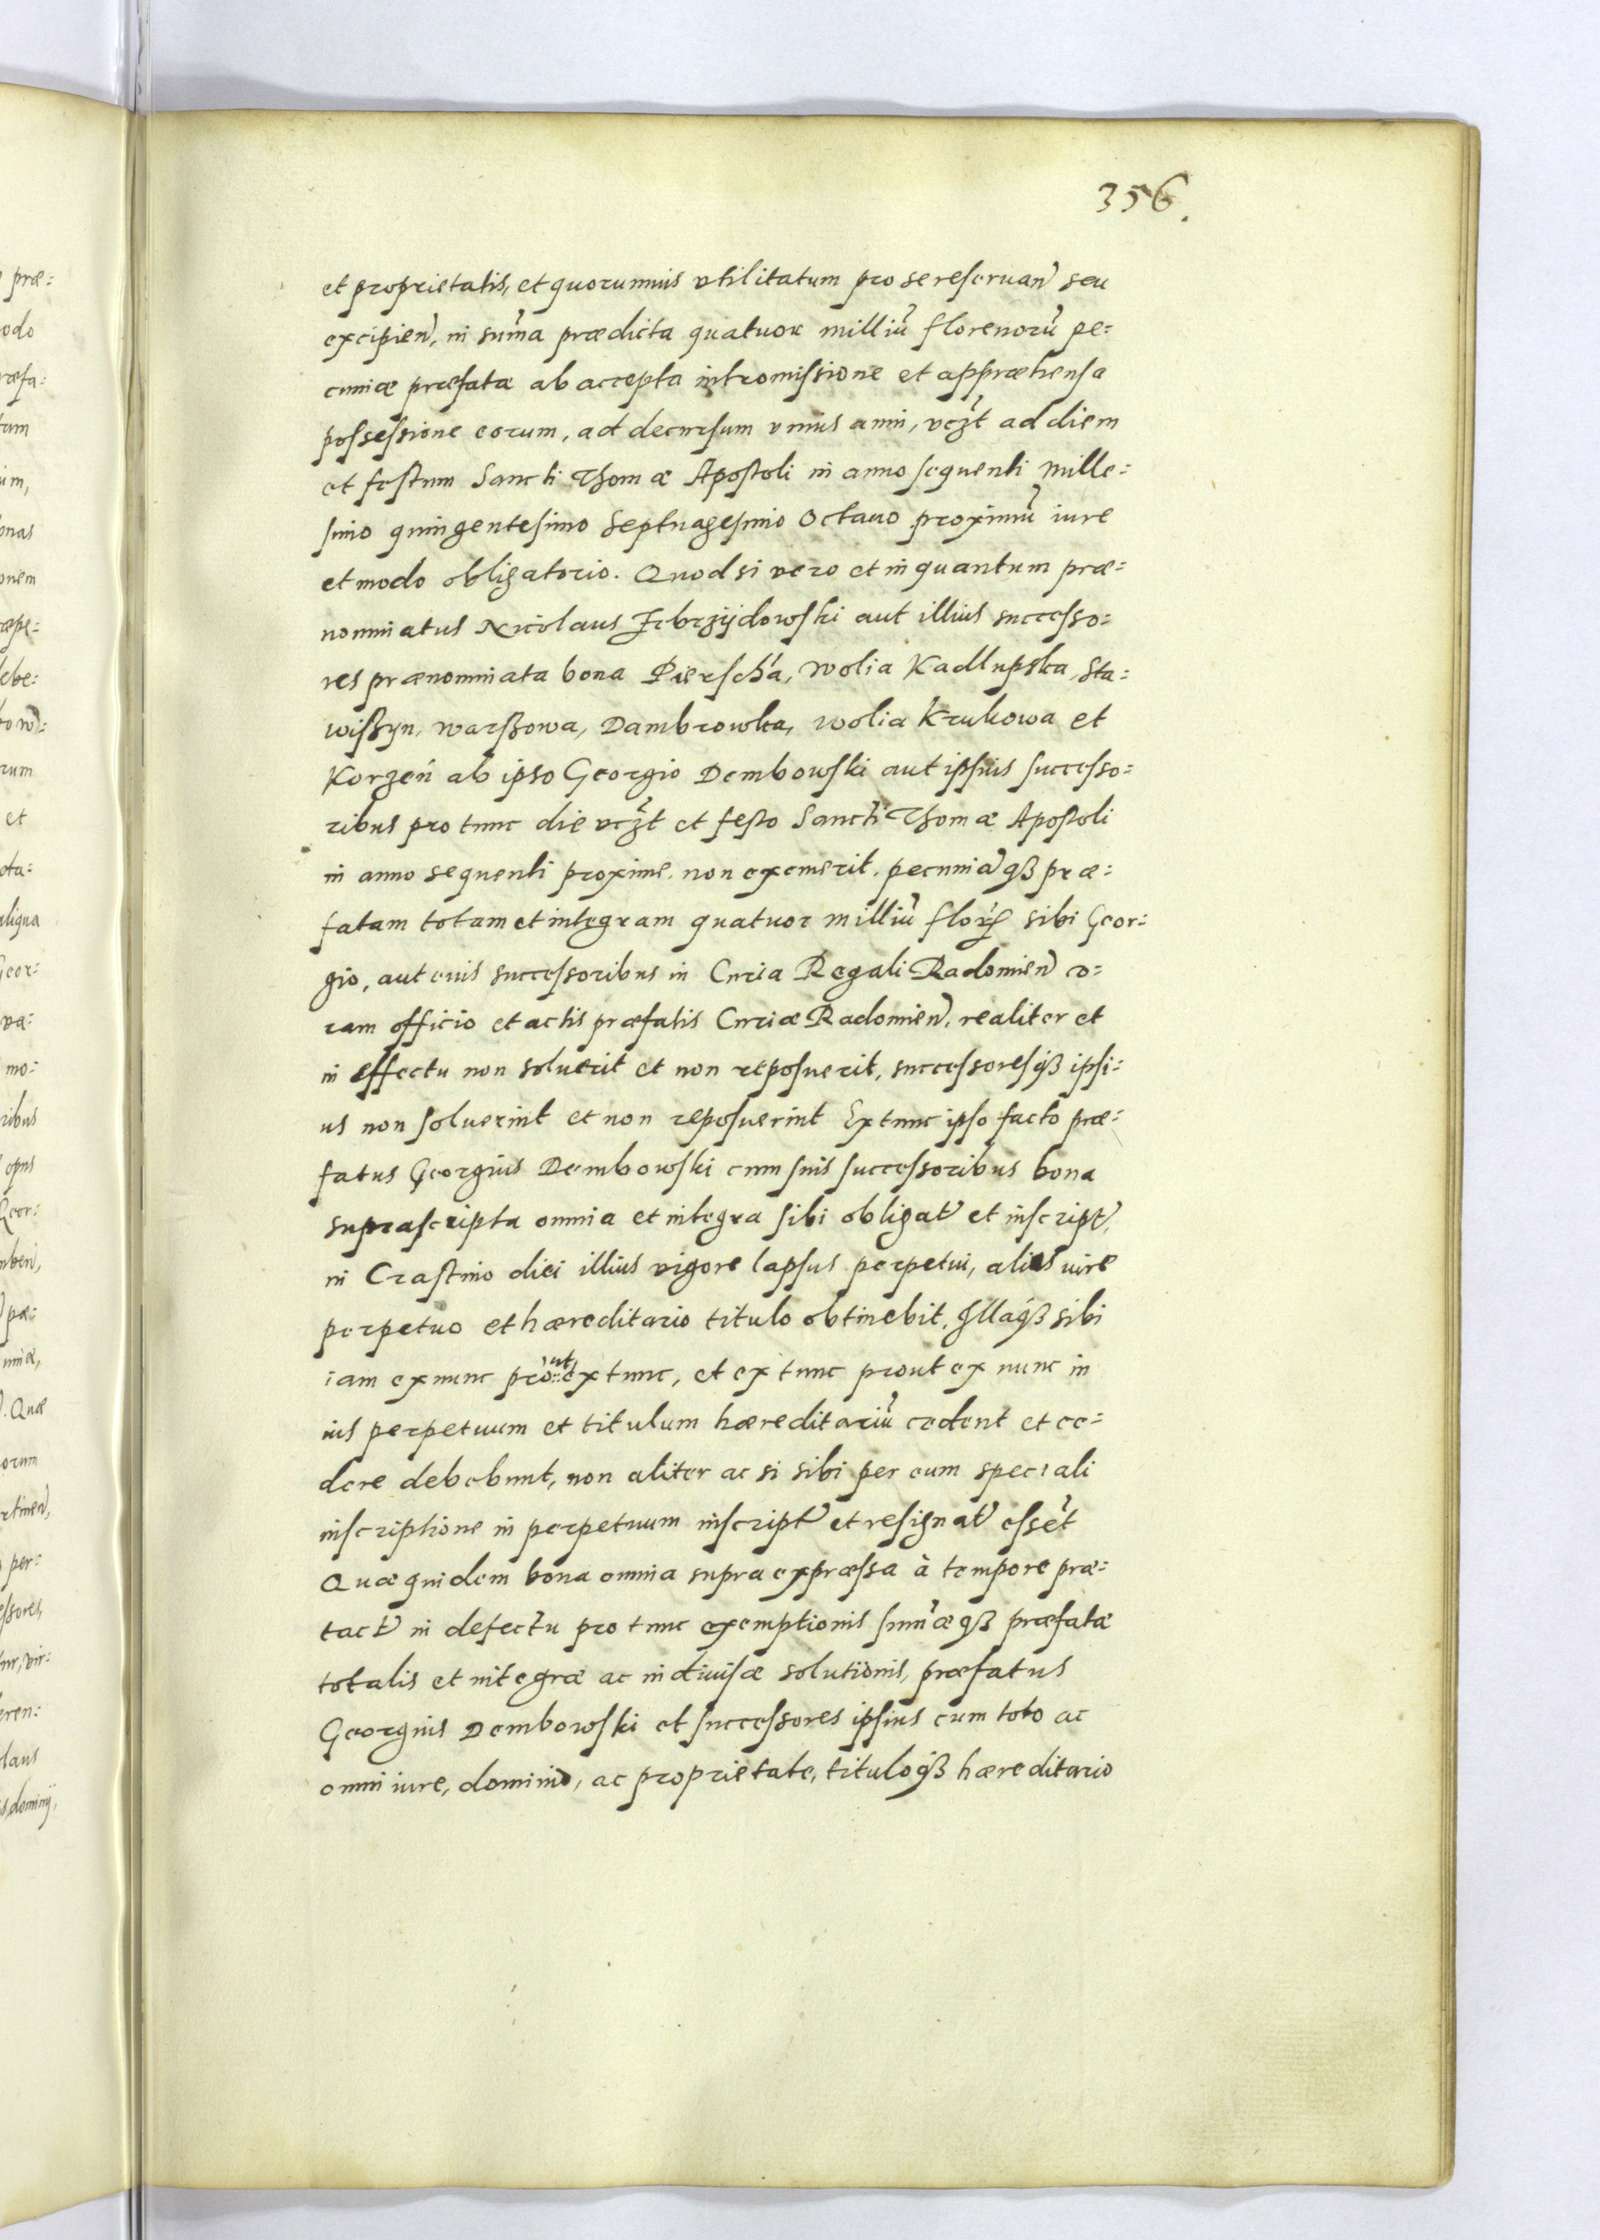 356.
et proprietatis, et quorumuis vtilitatum pro se reseruan̄ seu
excipien̄, in sum̄a prædicta quatuor milliū florenorū pe=
cuniæ præfatæ ab accepta intromissione et appræhensa
possessione eorum, ad decursum vnius anni, vcꝫt ad diem
et festum Sancti Thomæ Apostoli in anno sequenti Mille=
simo quingentesimo Septuagesimo Octauo proximū iure
et modo obligatorio. Quod si vero et in quantum præ=
nominatus Nicolaus Zebrzÿdowski aut illius successo=
res prænominata bona Pierschá, Wolia Kadlupska, Sta=
wißyn, Warßowa, Dambrowka, Wolia Krukowa et
Korzeń ab ipso Georgio Dembowski aut ipsius successo=
ribus pro tunc die vcꝫt et festo Sancti Thomæ Apostoli
in anno sequenti proxime non exemerit, pecuniāqꝫ præ=
fatam totam et integram quatuor milliū florꝝ sibi Geor=
gio, aut euis successoribus in Curia Regali Radomien̄ co=
ram officio et actis præfatis Curiæ Radomien̄, realiter et
in effectu non soluerit et non reposuerit, successoresqꝫ ipsi=
us non soluerint et non reposuerint Extunc ipso facto præ=
fatus Georgius Dembowski cum suis successoribus bona
suprascripta omnia et integra sibi obligat̄ et inscript̄,
in Crastino diei illius vigore lapsus perpetui, alias iure
perpetuo et hæreditario titulo obtinebit, Illaqꝫ sibi
iam exnunc prout extunc, et extunc prout ex nunc in
ius perpetuum et titulum hæreditariū cedent et ce=
dere debebunt, non aliter ac si sibi per eum speciali
inscriptione in perpetuum inscript̄ et resignat̄ essēt
Quæquidem bona omnia supra expræssa à tempore præ=
tact̄ in defectu pro tunc exemptionis sum̄æqꝫ præfatæ
totalis et integræ ac indiuisæ solutionis, præfatus
Georgius Dembowski et successores ipsius cum toto ac
omni iure, dominio, ac proprietate, tituloqꝫ hæreditario